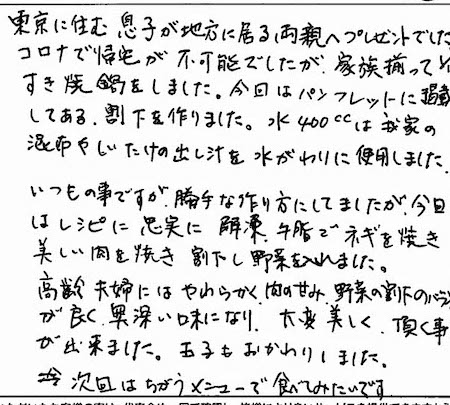 東京に住む息子が地方に居る両親へプレゼントでした
コロナで帰宅が不可能でしたが、家族揃って
すき焼鍋をしました。今回はパンフレットに掲載
してある、割下を作りました。水400ccは我家の
昆布やしいたけの出し汁を水がわりに使用しました。
いつもの事ですが、勝手な作り方にしてましたが、今回
はレシピに忠実に解凍、牛脂でネギを焼き
美しい肉を焼き割下し野菜を入れました。
高齢夫婦にはやわらかく、肉の甘み、野菜の割下のバラン
が良く、奥深い味になり、大変美しく、頂く事
が出来ました。玉子もおかわりしました。
次回はちがうメニューで食べてみたいです